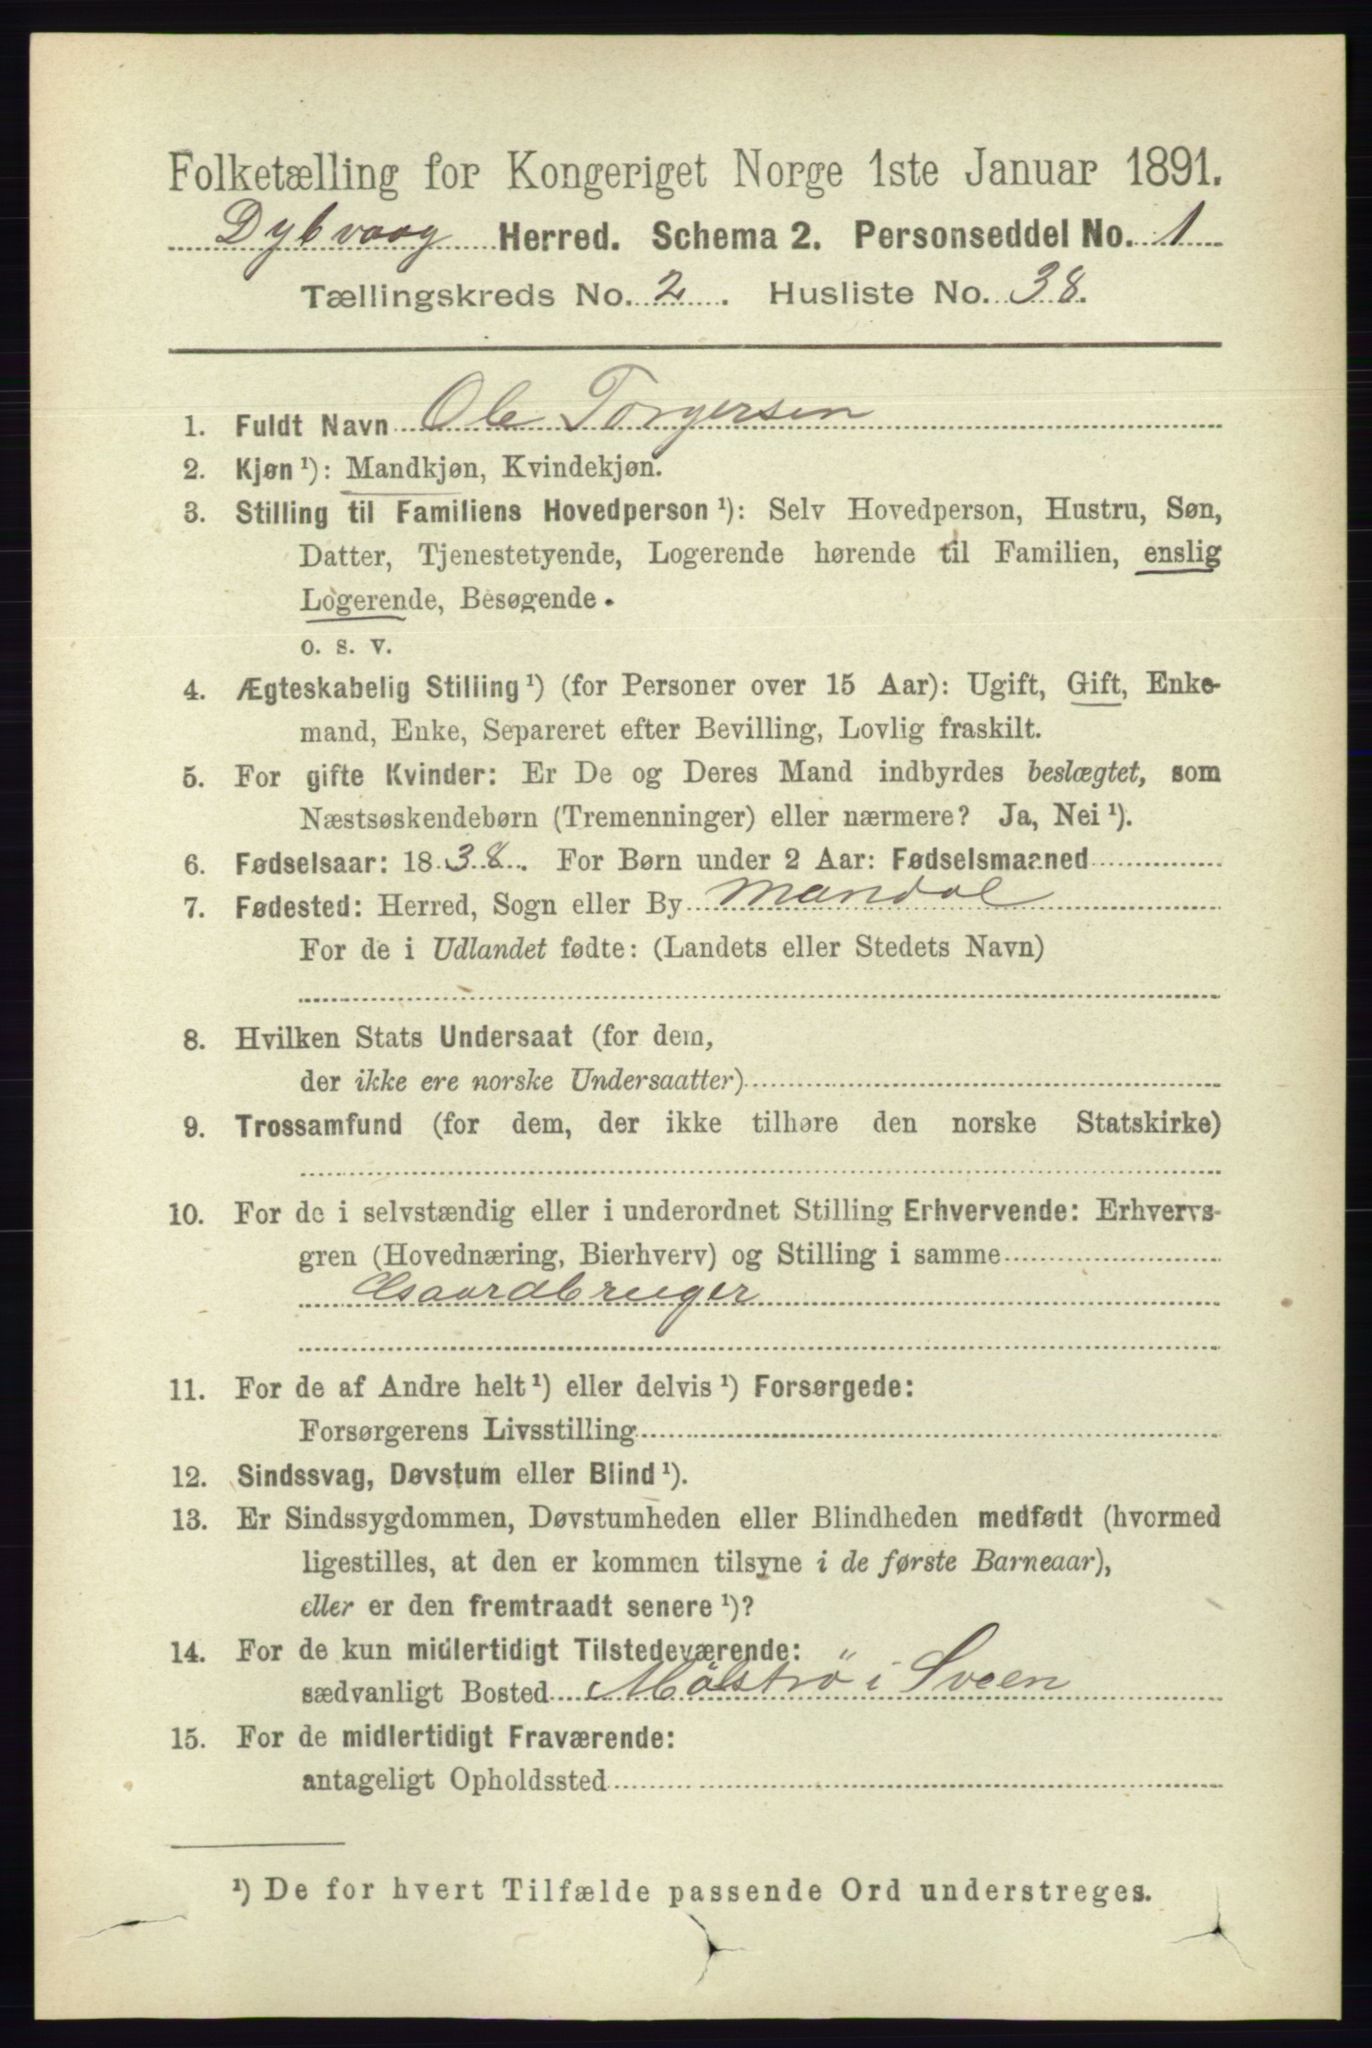 Folketælling for Kongeriget Norge 1ste Januar 1891.
Dybvaag Herred. Schema 2. Personseddel No. 1
Tællingskreds No. 2. Husliste No. 38.
1. Fuldt Navn Ole Torgersen
2. Kjøn ¹): Mandkjøn, Kvindekjøn.
3. Stilling til Familiens Hovedperson ¹): Selv Hovedperson, Hustru, Søn,
Datter, Tjenestetyende, Logerende hørende til Familien, enslig
Logerende, Besøgende.
o. s. v.
4. Ægteskabelig Stilling ¹) (for Personer over 15 Aar): Ugift, Gift, Enke-
mand, Enke, Separeret efter Bevilling, Lovlig fraskilt.
5. For gifte Kvinder: Er De og Deres Mand indbyrdes beslægtet, som
Næstsøskendebørn (Tremenninger) eller nærmere? Ja, Nei ¹).
6. Fødselsaar: 1838. For Børn under 2 Aar: Fødselsmaaned
7. Fødested: Herred, Sogn eller By Mandal
For de i Udlandet fødte: (Landets eller Stedets Navn)
8. Hvilken Stats Undersaat (for dem,
der ikke ere norske Undersaatter)
9. Trossamfund (for dem, der ikke tilhøre den norske Statskirke)
10. For de i selvstændig eller i underordnet Stilling Erhvervende: Erhvervs-
gren (Hovednæring, Bierhverv) og Stilling i samme
Gaardbruger
11. For de af Andre helt ¹) eller delvis ¹) Forsørgede:
Forsørgerens Livsstilling
12. Sindssvag, Døvstum eller Blind ¹).
13. Er Sindssygdommen, Døvstumheden eller Blindheden medfødt (hvormed
ligestilles, at den er kommen tilsyne i de første Barneaar),
eller er den fremtraadt senere ¹)?
14. For de kun midlertidigt Tilstedeværende:
sædvanligt Bosted Mölströ i Sveen
15. For de midlertidigt Fraværende:
antageligt Opholdssted
¹) De for hvert Tilfælde passende Ord understreges.